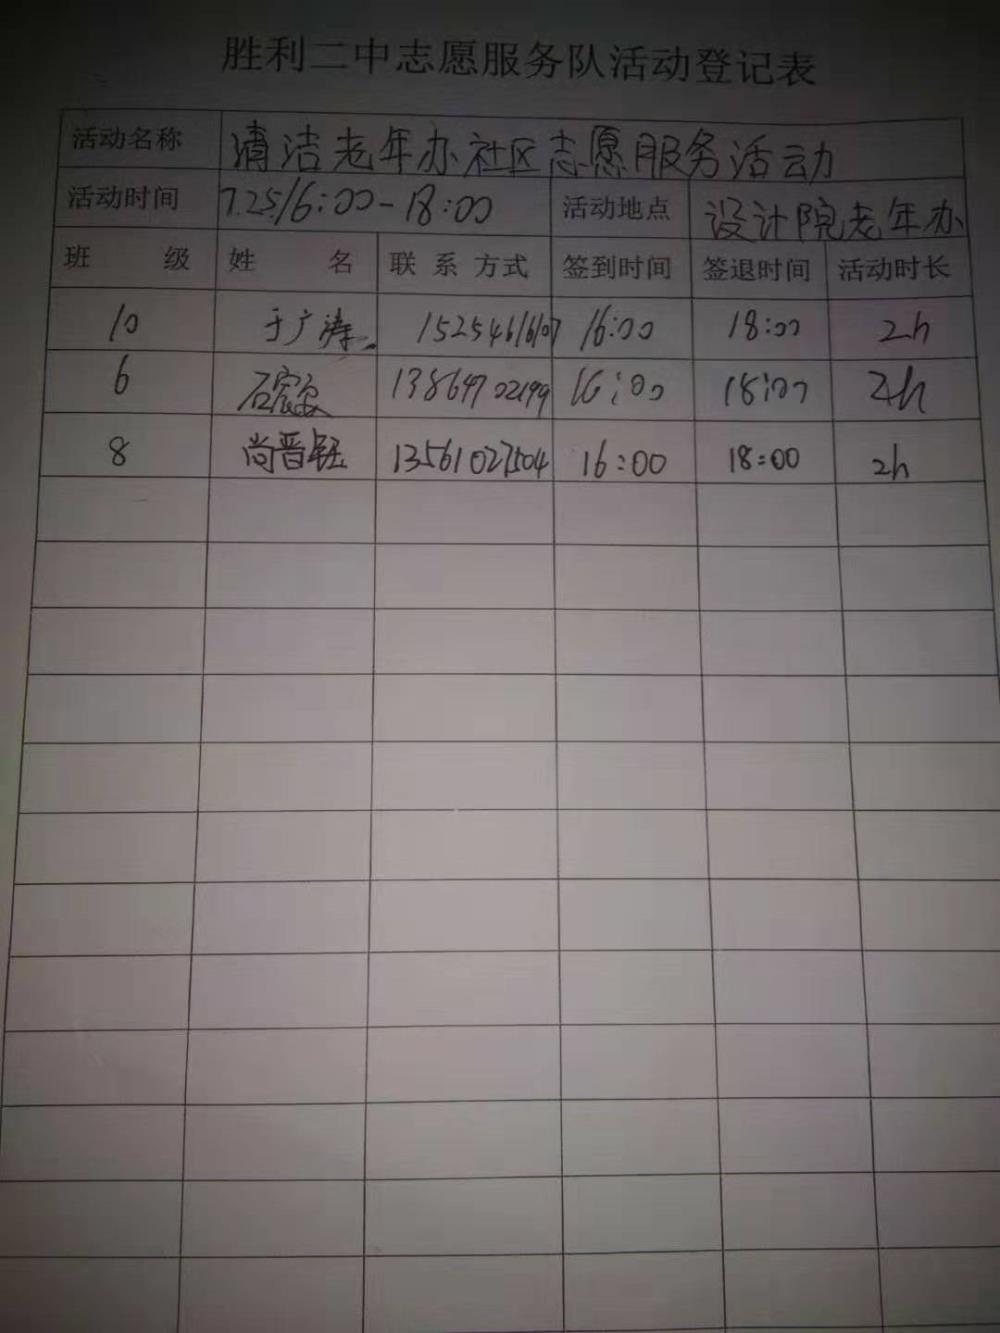 胜利二中志愿服务队活动登记表
活动名称 清洁老年办社区志愿服务活动
活动时间 7.25/16:00-18:00 活动地点 设计院老年办
班 级 姓 名 联 系 方式 签到时间 签退时间 活动时长
10 于广涛 15254616107 16:00 18:00 2h
6 石 13864702199 16:00 18:00 2h
8 尚晋钰 13561027504 16:00 18:00 2h